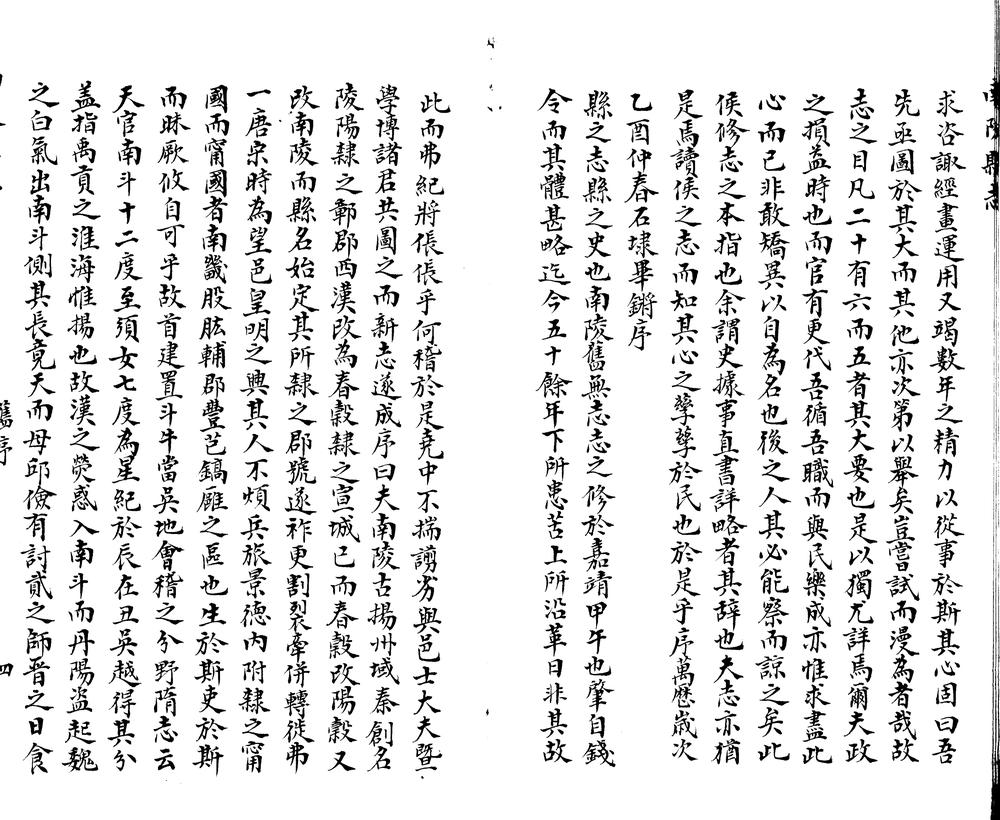 南陵縣志
求咨諏經畫運用又竭數年之精力以從事於斯其心固曰吾
先亟圖於其大而其他亦次第以舉矣豈嘗試而漫為者哉故
志之目凡二十有六而五者其大要也是以獨尤詳焉爾夫政
之損益時也而官有更代吾循吾職而與民樂成亦惟求盡此
心而已非敢矯異以自為名也後之人其必能察而諒之矣此
侯修志之本指也余謂史據事直書詳略者其辞也夫志亦猶
是焉讀侯之志而知其心之孳孳於民也於是乎序萬曆歲次
乙酉仲春石埭畢鏘序
縣之志縣之史也南陵舊無志志之修於嘉靖甲午也肇自錢
令而其體甚略迄今五十餘年下所患苦上所沿革日非其故
此而弗紀將倀倀乎何稽於是堯中不揣謭劣與邑士大夫暨
學博諸君共圖之而新志遂成序曰夫南陵古揚州域秦創名
陵陽隸之鄣郡西漢改為春穀隸之宣城已而春穀改陽穀又
改南陵而縣名始定其所隸之郡號遂祚更割裂牽併轉徙弗
一唐宋時為望邑皇明之興其人不煩兵旅景德內附隸之甯
國而甯國者南畿股肱輔郡豐芑鎬雝之區也生於斯吏於斯
而昧厥攸自可乎故首建置斗牛當吳地會稽之分野隋志云
天官南斗十二度至須女七度為星紀於辰在丑吳越得其分
盖指禹貢之淮海惟揚也故漢之熒惑入南斗而丹陽盜起魏
之白氣出南斗側其長竟天而毋邱儉有討貳之師晉之日食
舊序
四